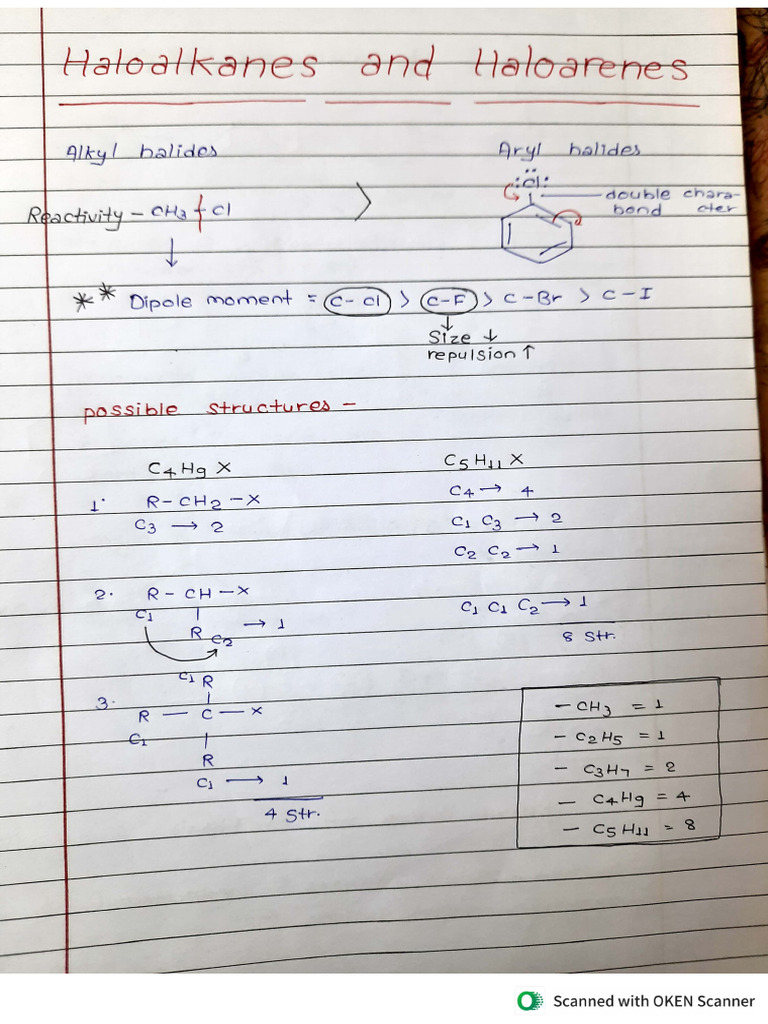 Haloalkanes and Haloarenes
Alkyl halides
Aryl halides
:Cl:
double chara-
bond cter
Reactivity – CH3 Cl >
** Dipole moment = C-Cl > C-F > C-Br > C-I
Size ↓
repulsion ↑
possible structures –
C4H9X
1. R-CH2-X
C3 → 2
2. R-CH-X
C1
R C2 → 1
C1 R
3. R — C — X
C1
R
C1 → 1
4 Str.
C5H11X
C4 → 4
C1 C3 → 2
C2 C2 → 1
C1 C1 C2 → 1
8 Str.
– CH3 = 1
– C2H5 = 1
– C3H7 = 2
– C4H9 = 4
– C5H11 = 8
Scanned with OKEN Scanner